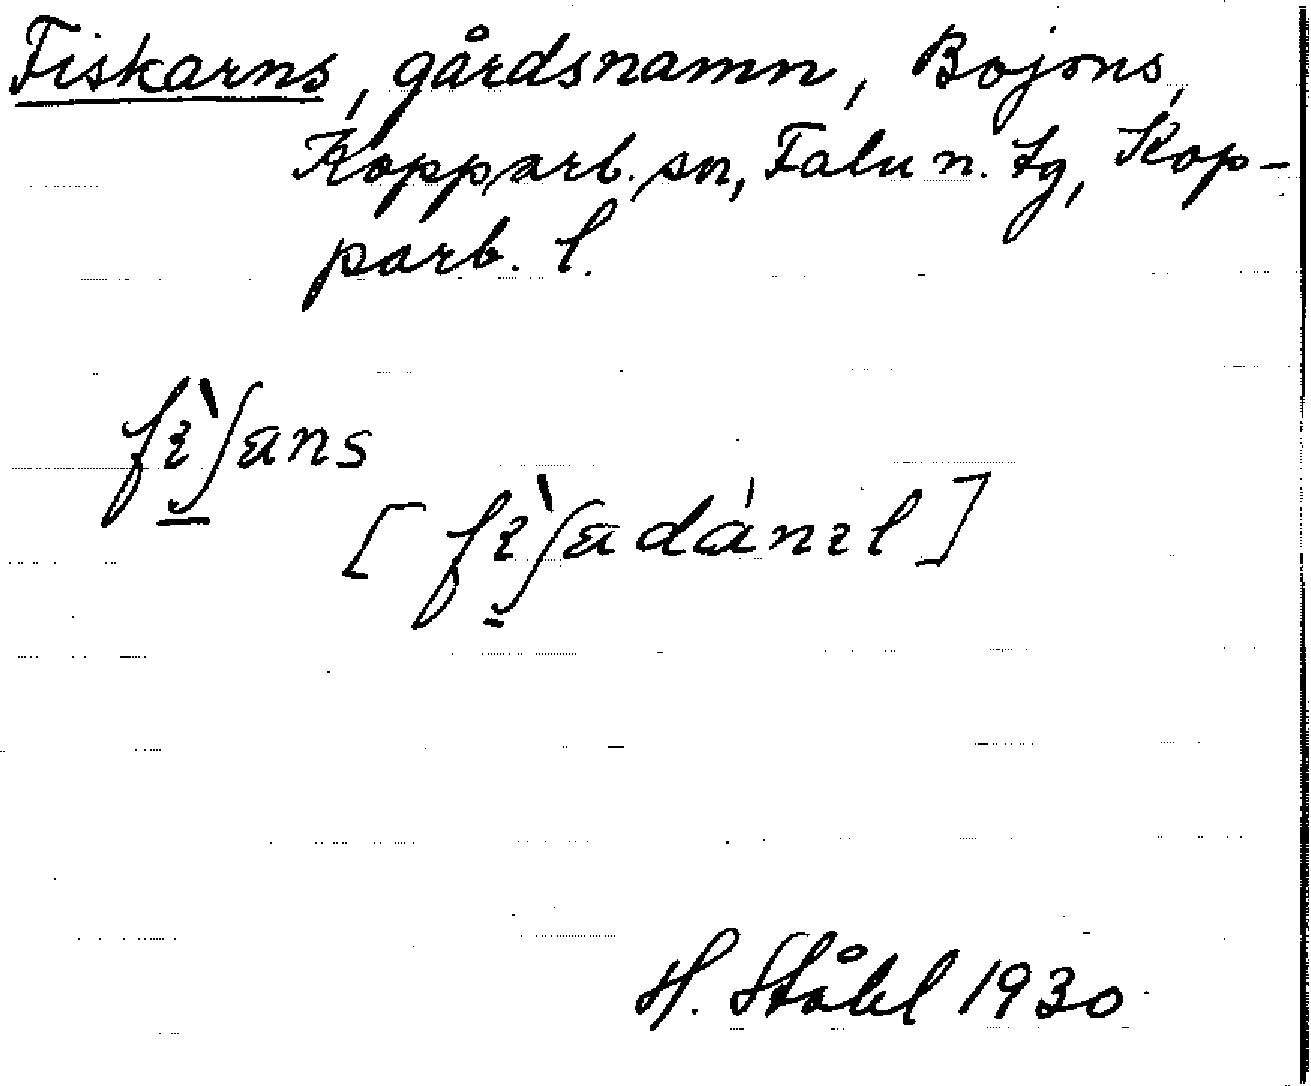 Fiskarns, gårdsnamn, Bojsns,
Kopparb. sn, Falu n. tg, Kop-
parb. l.
fɪ̀ʃans
[fɪ̀ʃadánɪl]
H. Ståhl 1930